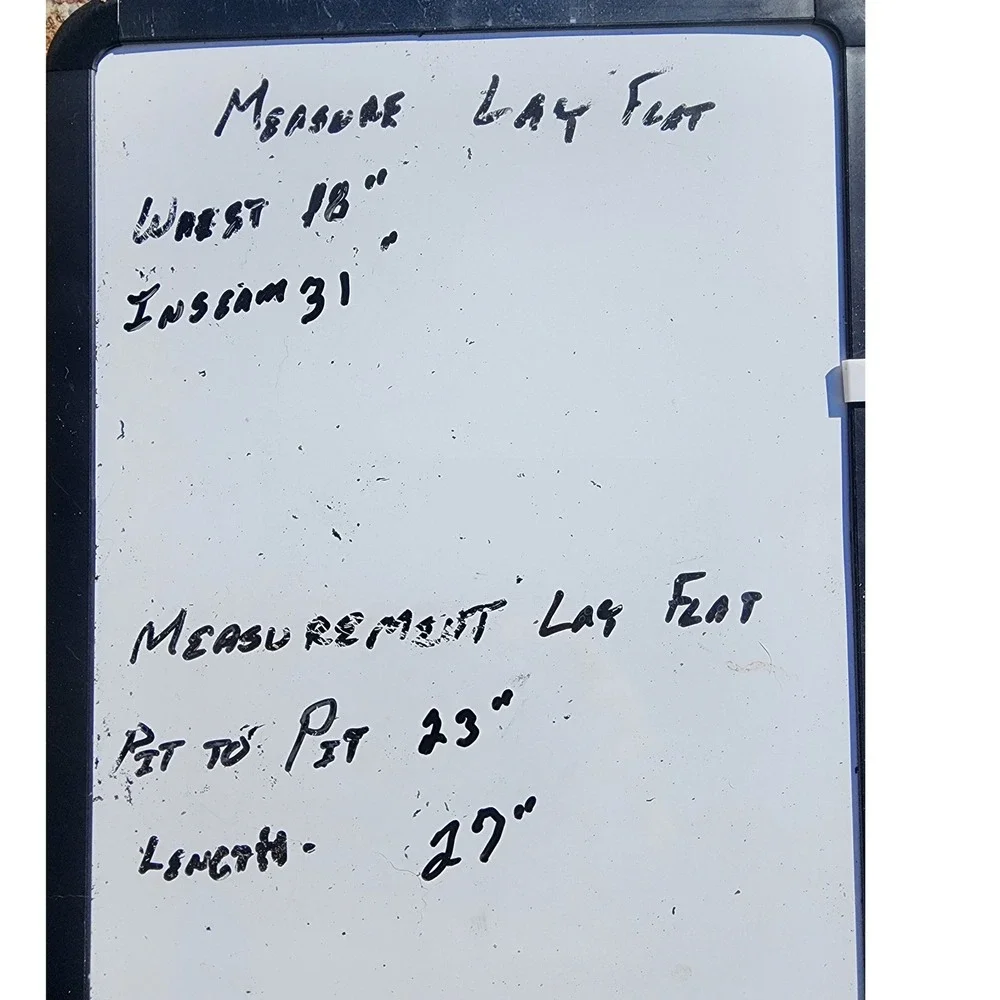 MEASURE LAY FLAT
WAIST 18"
INSEAM 31"
MEASUREMENT LAY FLAT
PIT TO PIT 23"
LENGTH. 27"